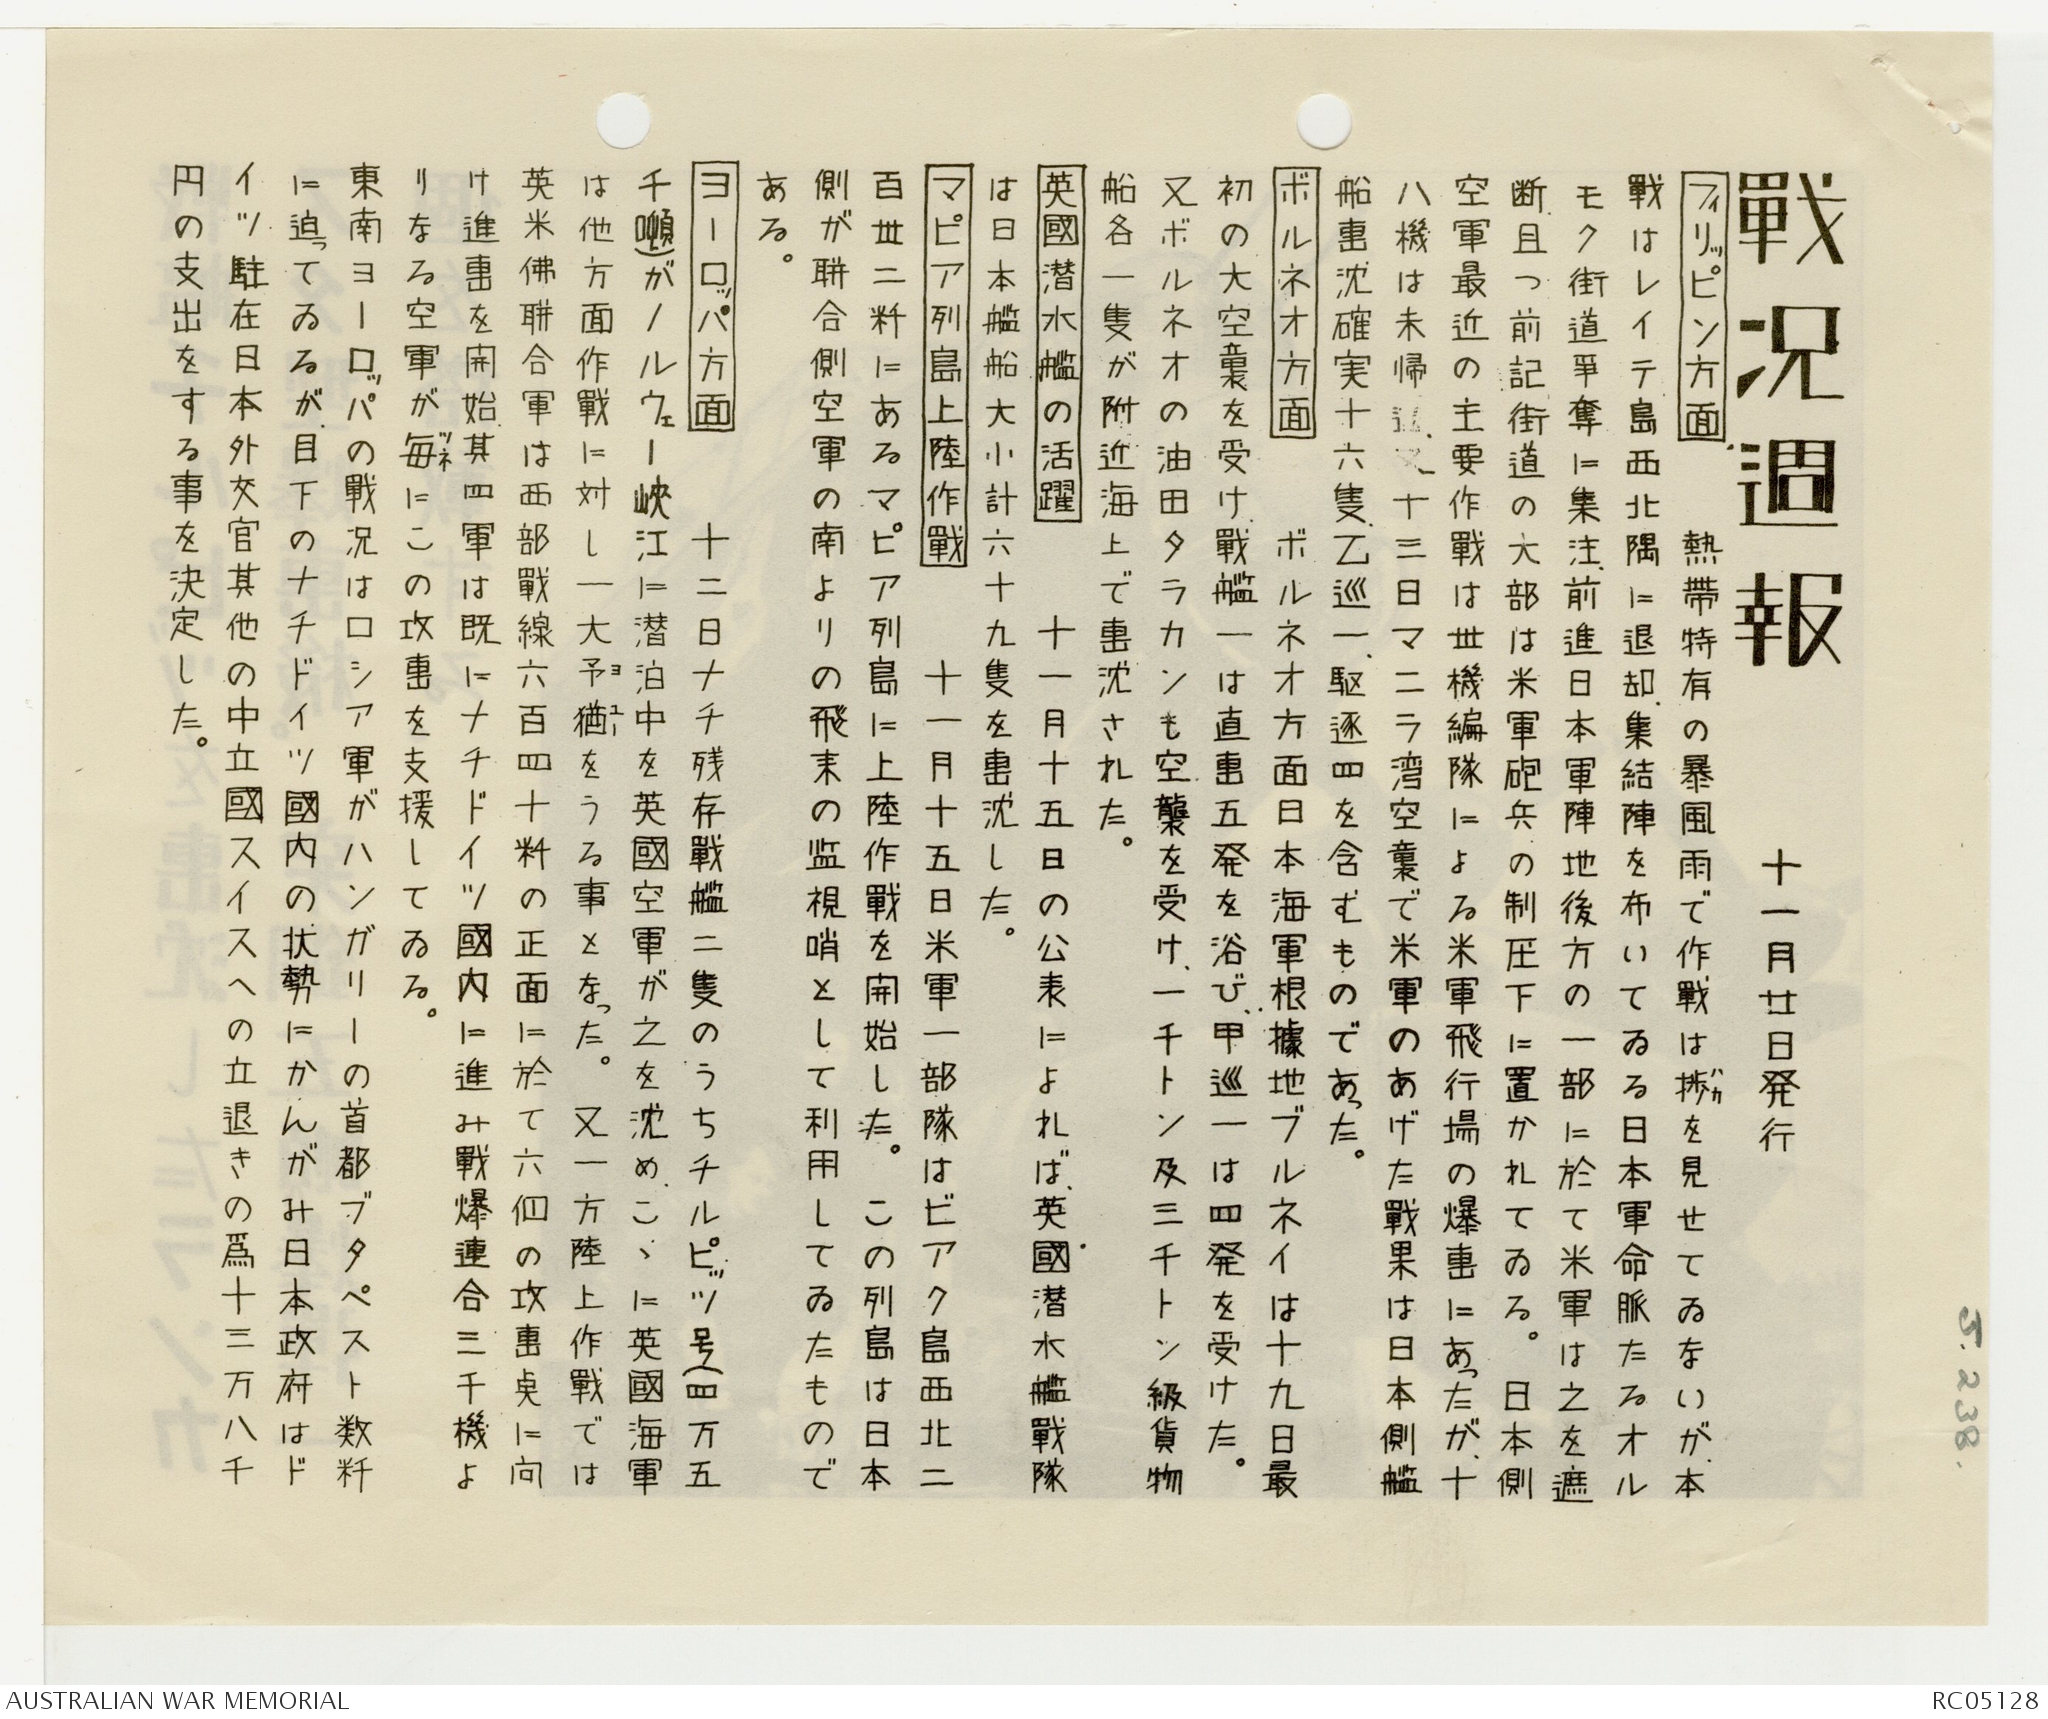 戰況週報
十一月廿日発行
フィリッピン方面　熱帶特有の暴風雨で作戰は捗バカを見せてゐないが、本
戰はレイテ島西北隅に退却、集結陣を布いてゐる日本軍命脈たるオル
モク街道爭奪に集注、前進日本軍陣地後方の一部に於て米軍は之を遮
断、且つ前記街道の大部は米軍砲兵の制圧下に置かれてゐる。日本側
空軍最近の主要作戰は丗機編隊による米軍飛行場の爆撃にあったが、十
八機は未帰還、又十三日マニラ湾空襲で米軍のあげた戰果は日本側艦
船撃沈確実十六隻、乙巡一、駆逐四を含むものであった。
ボルネオ方面　ボルネオ方面日本海軍根據地ブルネイは十九日最
初の大空襲を受け、戰艦一は直撃五発を浴び、甲巡一は四発を受けた。
又ボルネオの油田タラカンも空襲を受け、一千トン及三千トン級貨物
船各一隻が附近海上で撃沈された。
英國潜水艦の活躍　十一月十五日の公表によれば、英國潜水艦戰隊
は日本艦船大小計六十九隻を撃沈した。
マピア列島上陸作戰　十一月十五日米軍一部隊はビアク島西北二
百丗二粁にあるマピア列島に上陸作戰を開始した。この列島は日本
側が聨合側空軍の南よりの飛来の监視哨として利用してゐたもので
ある。
ヨーロッパ方面　十二日ナチ残存戰艦二隻のうちチルピッツ号（四万五
千噸）がノルウェー峡江に潜泊中を英國空軍が之を沈め、こゝに英國海軍
は他方面作戰に対し一大予ヨ猶ユーをうる事となった。又一方陸上作戰では
英米佛聨合軍は西部戰線六百四十粁の正面に於て六個の攻撃奌に向
け進撃を開始、其四軍は既にナチドイツ國内に進み戰爆連合三千機よ
りなる空軍が毎ツネにこの攻撃を支援してゐる。
東南ヨーロッパの戰況はロシア軍がハンガリーの首都ブタペスト数粁
に迫ってゐるが、目下のナチドイツ國内の状勢にかんがみ日本政府はド
イツ駐在日本外交官其他の中立國スイスへの立退きの爲十三万八千
円の支出をする事を決定した。
J. 238.
AUSTRALIAN WAR MEMORIAL
RC05128